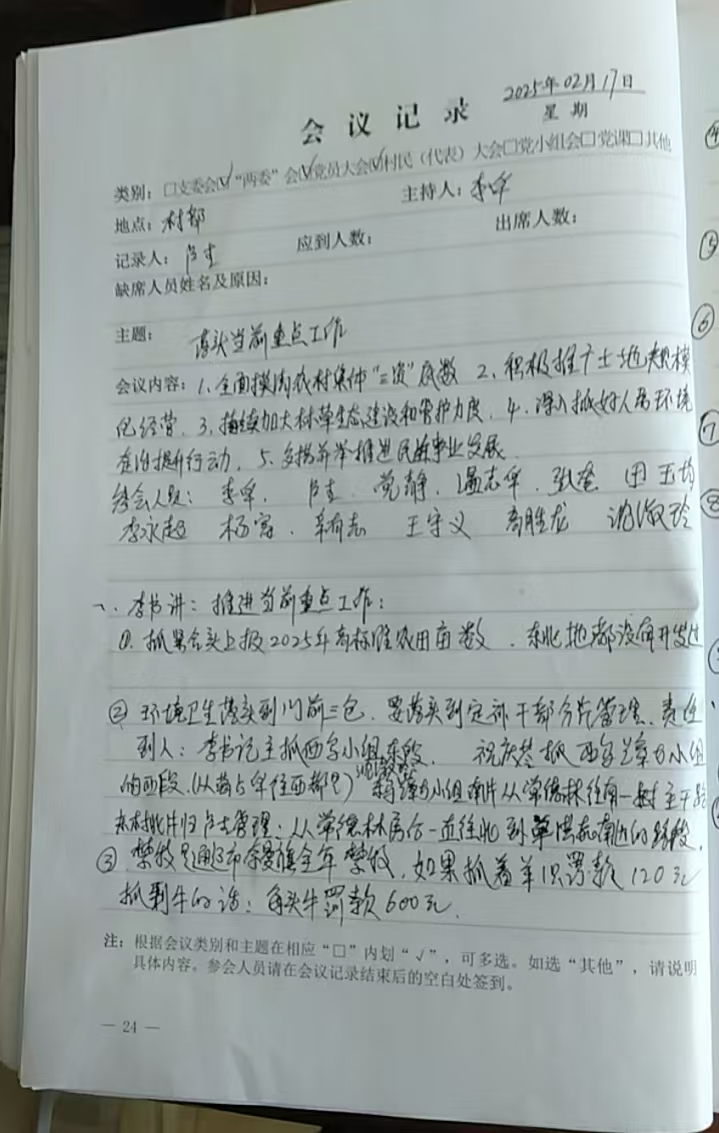 2025年02月17日
会议记录 星期
类别：□支委会☑“两委”会☑党员大会☑村民（代表）大会□党小组会□党课□其他
地点：村部 主持人：李军
记录人：卢 应到人数： 出席人数：
缺席人员姓名及原因：
主题： 落实当前重点工作
会议内容：1、全面摸清农村集体“三资”底数 2、积极推广土地规模
化经营、3、持续加大林草生态建设和管护力度、4、深入抓好人居环境
整治提升行动、5、多措并举推进民族事业发展、
参会人员：李军、 党静、温志军、张 田玉均
李永超 杨富、辛有志 王守义 高胜龙 沈淑玲
一、李书讲：推进当前重点工作：
①、抓紧落实上报2025年高标准农田亩数、东北地都没有开发过
② 环境卫生落实到门前三包、要落实到定 干部分片管理、责任
到人：李书记主抓西 小组东段、 祝庆 抓西 小组
的西段、 小组南片从常德林往南一 主干路
北片归 管理：从常德林房 一直往北到 南边的路段、
③、禁牧 通 全年禁牧，如果抓着羊1只罚款120元
抓到牛的话：每头牛罚款600元、
注：根据会议类别和主题在相应“□”内划“√”，可多选。如选“其他”，请说明
具体内容。参会人员请在会议记录结束后的空白处签到。
— 24 —
④
⑤
⑥
⑦
⑧